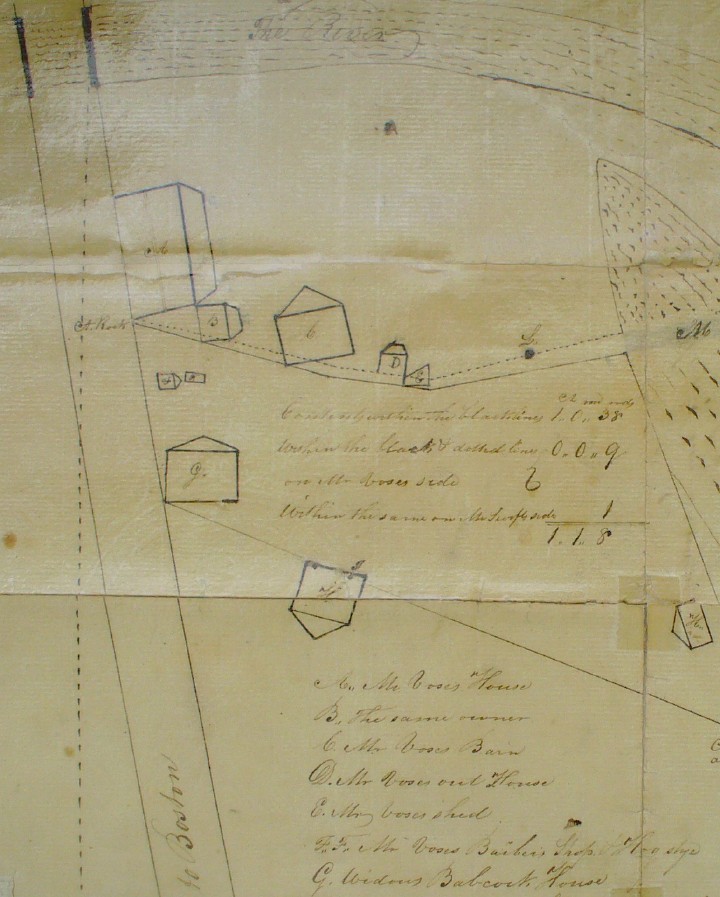 The River
A
A
A Rock
B
C
D
E
L
M
F F
G.
H
Contents within the black lines 1. 0. 38
Within the black & dotted lines 0. 0. 9
on Mr Voses side
Within the same on Mr Swifts side 1
1. 1. 8
A. Mr Voses House
B. The same owner
C. Mr Voses Barn
D. Mr Voses out House
E. Mr Voses shed
F. F. Mr Voses Barbers Shop & Hog stye
G. Widow Babcock House
to Boston